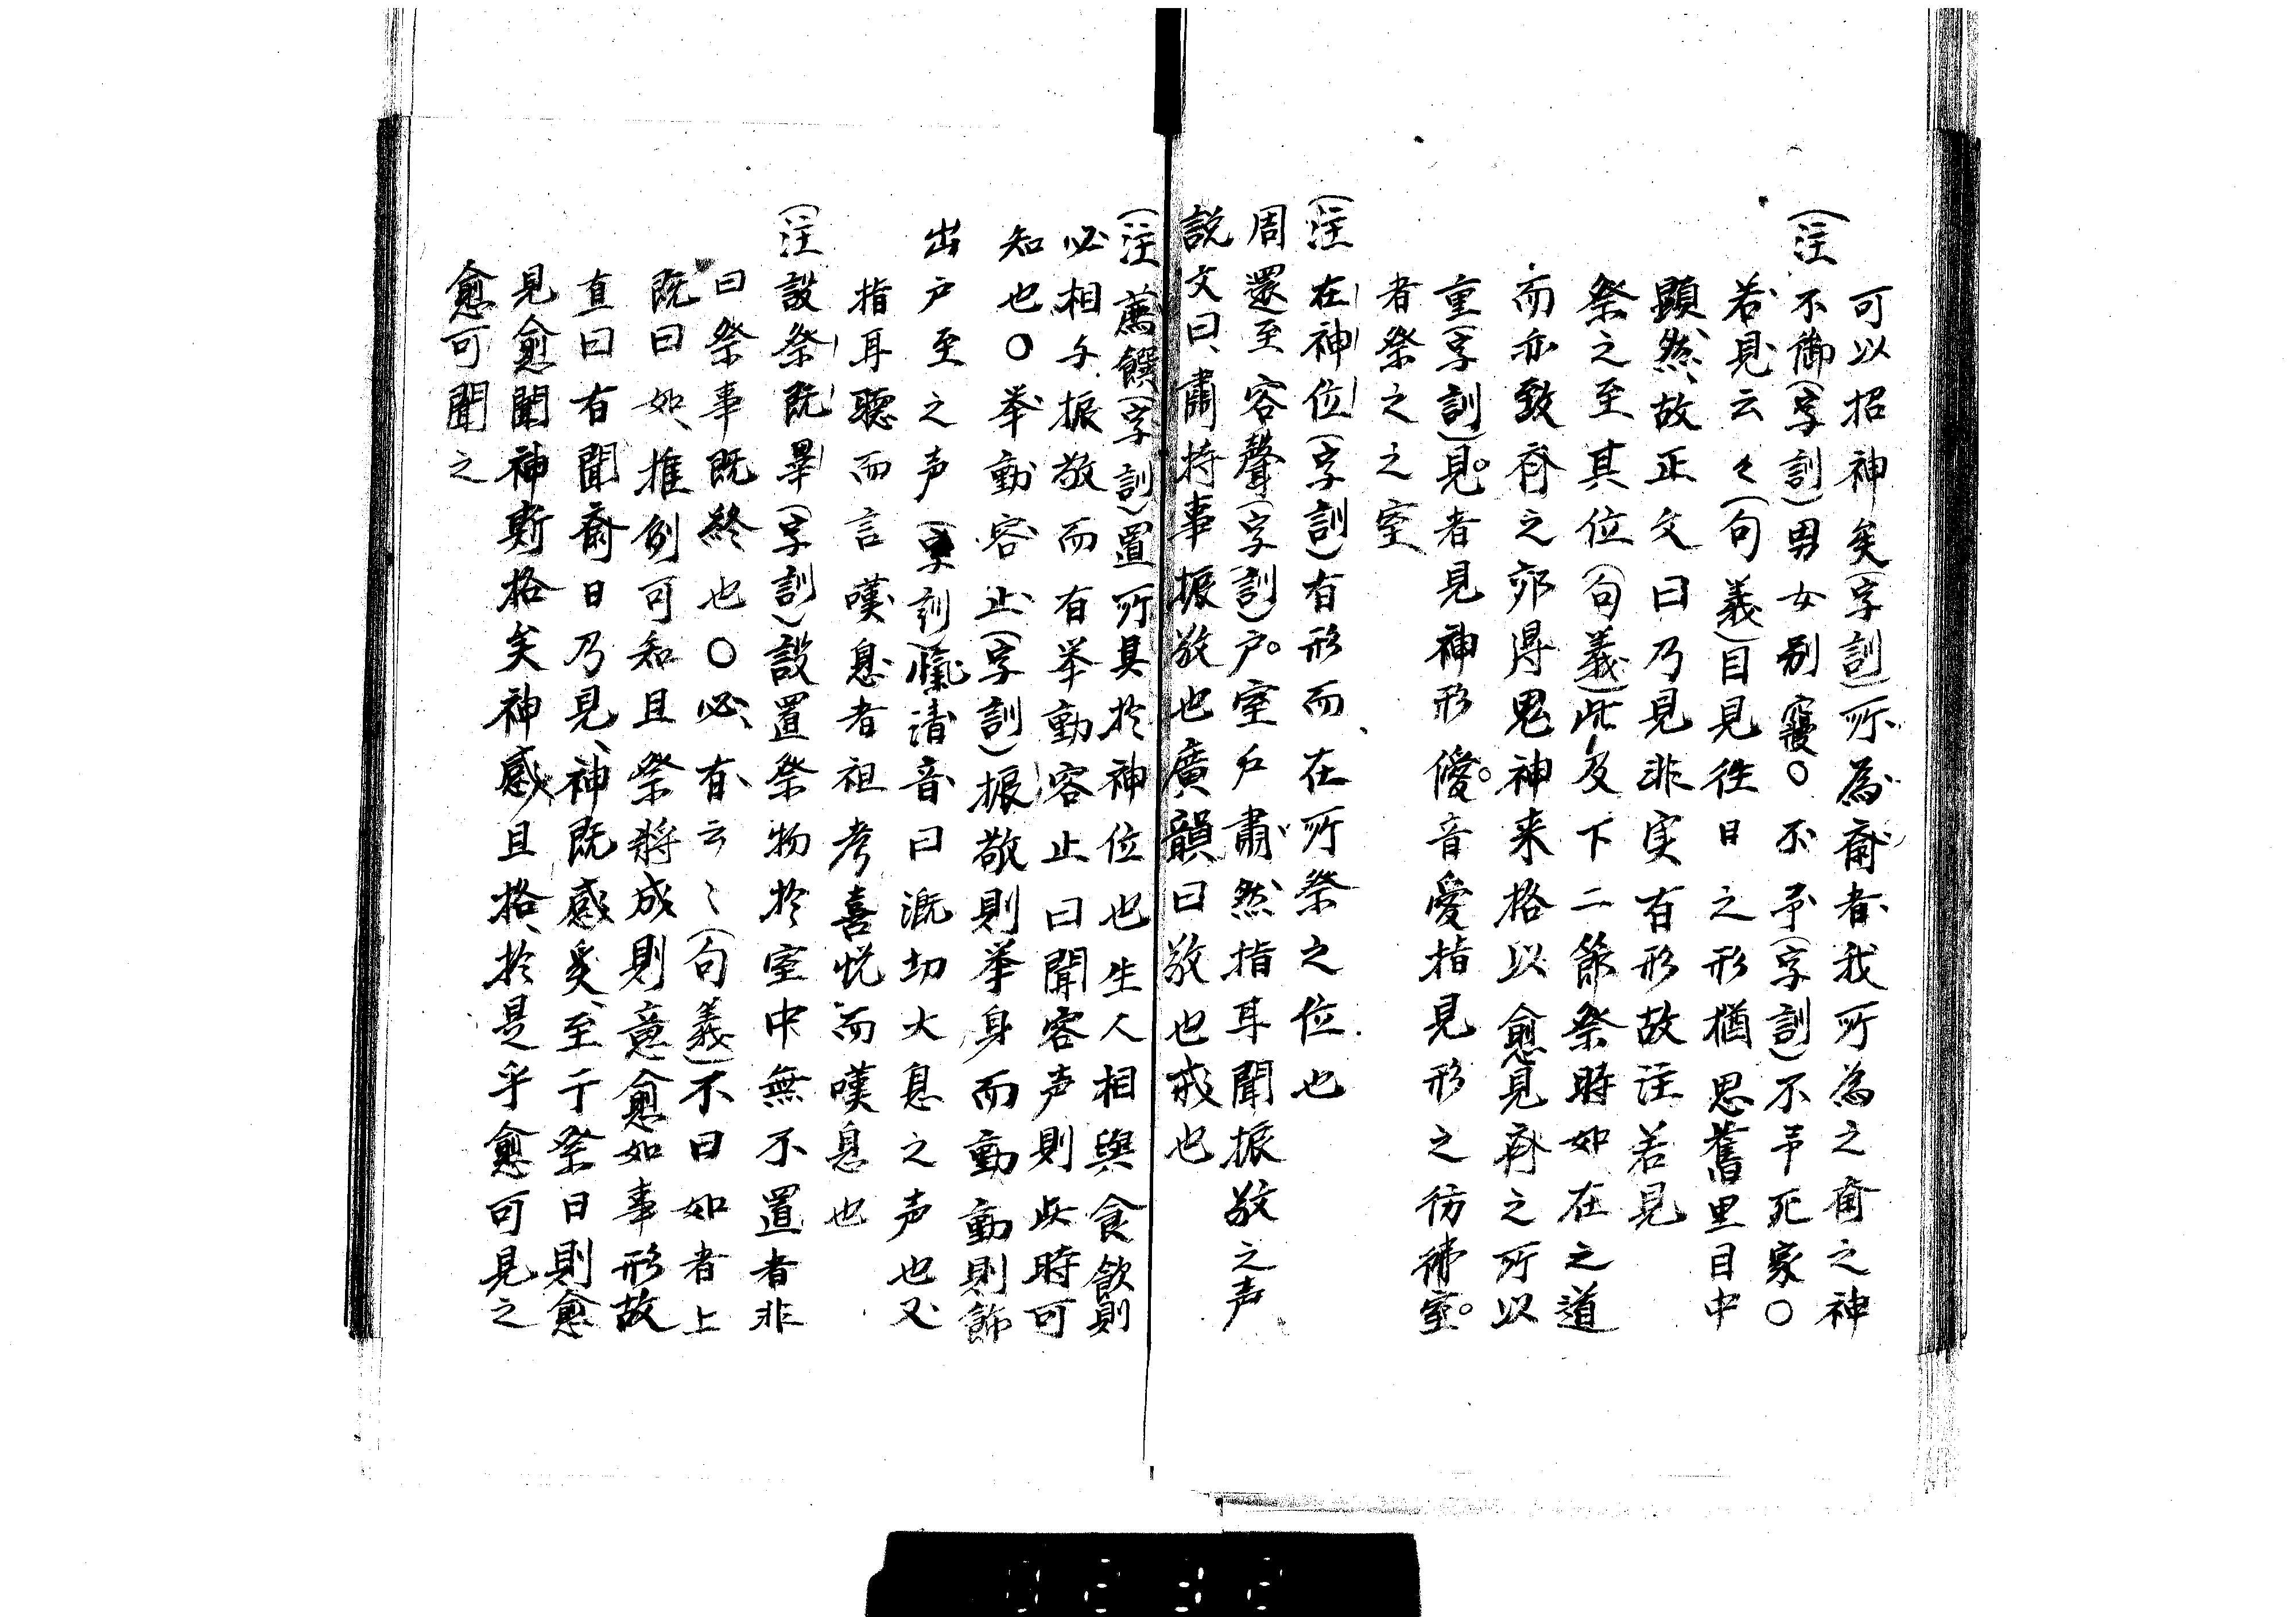 可以招神矣(字訓)所為齋者我所為之齋之神
(注)不御(字訓)男女別寢○不弔(字訓)不弔死家○
若見云々(句義)目見徃日之形猶思舊里目中
顕然故正文曰乃見非実有形故注若見
祭之至其位(句義)此及下二節祭時如在之道
而亦致齊之邪得鬼神来格以愈見齊之所以
重(字訓)見者見神形僾音愛指見形之彷彿室
者祭之之室
(注)在神位(字訓)有形而在所祭之位也
周還至容聲(字訓)戸室戶肅然指耳聞振敬之声
説文曰肅持事振敬也廣韻曰敬也戒也
(注)薦饌(字訓)置所具於神位也生人相與食飲則
必相与振敬而有举動容止曰聞容声則此時可
知也○举動容止(字訓)振敬則举身而動動則飾
出戸至之声(字訓)愾清音曰漑切大息之声也又
指耳聽而言嘆息者祖考喜悅而嘆息也
(注)設祭既畢(字訓)設置祭物於室中無不置者非
曰祭事既終也○必有云々(句義)不曰如者上
既曰如推例可知且祭將成則意愈如事形故
直曰有聞齋日乃見神既感矣至于祭日則愈
見愈聞神斯格矣神感且格於是乎愈可見之
愈可聞之